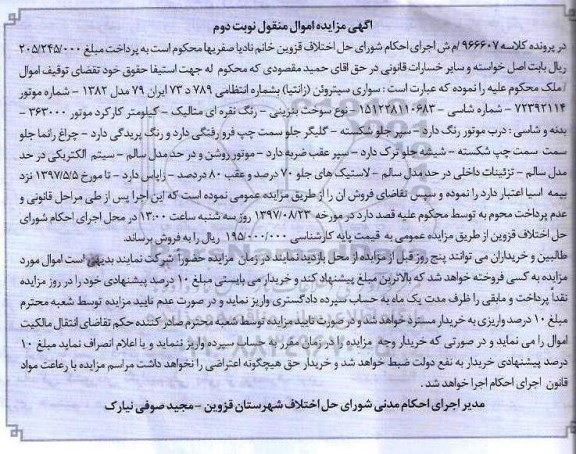 آگهی مزایده اموال منقول نوبت دوم
در پرونده کلاسه ۹۶۶۶۰۷ /م ش اجرای احکام شورای حل اختلاف قزوین خانم نادیا صفریها محکوم است به پرداخت مبلغ ۲۰۵/۲۴۵/۰۰۰
ریال بابت اصل خواسته و سایر خسارات قانونی در حق اقای حمید مقصودی که محکوم له جهت استیفا حقوق خود تقضای توقیف اموال
/ ملک محکوم علیه را نموده که عبارت است : سواری سیتروئن (زانتیا) بشماره انتظامی ۷۸۹ د ۷۳ ایران ۷۹ مدل ۱۳۸۲ – شماره موتور
۷۲۳۹۲۱۱۴ – شماره شاسی – ۱۵۱۲۲۸۱۱۰۶۸۳ – نوع سوخت بنزینی – رنگ نقره ای متالیک – کیلومتر کارکرد موتور ۳۶۳۰۰۰ –
بدنه و شاسی : درب موتور رنگ دارد – سپر جلو شکسته – گلگیر جلو سمت چپ فرو رفتگی دارد و رنگ پریدگی دارد – چراغ رانما جلو
سمت سمت چپ شکسته – شیشه جلو ترک دارد – سپر عقب ضربه دارد – موتور روشن و در حد مدل سالم – سیتم الکتریکی در حد
مدل سالم – تزئینات داخلی در حد مدل سالم – لاستیک های جلو ۷۰ درصد و عقب ۸۰ دردصد – زاپاس دارد – تا مورخ ۱۳۹۷/۵/۵ نزد
بیمه اسیا اعتبار دارد را نموده و سپس تقاضای فروش ان را از طریق مزایده عمومی نموده است که این اجرا پس از طی مراحل قانونی و
عدم پرداخت محوم به توسط محکوم علیه قصد دارد در مورخه ۱۳۹۷/۰۸/۲۳ روز سه شنبه ساعت ۱۳:۰۰ در محل اجرای احکام شورای
حل اختلاف قزوین از طریق مزایده عمومی به قیمت پایه کارشناسی ۱۹۵/۰۰۰/۰۰۰ ریال را به فروش برساند.
طالبین و خریداران می توانند پنج روز قبل از مزایده از محل بازدید نمایند در زمان مزایده حضورا شرکت نمایند بدیهی است اموال مورد
مزایده به کسی فروخته خواهد شد که بالاترین مبلغ پیشنهاد کند و خریدار می بایستی مبلغ ۱۰ درصد پیشنهادی خود را در روز مزایده
نقداً پرداخت و مابقی را ظرف مدت یک ماه به حساب سپرده دادگستری واریز نماید و در صورت عدم تایید مزایده توسط شعبه محترم
مبلغ ۱۰ درصد واریزی به خریدار مسترد خواهد شد و در صورت تایید مزایده توسط شعبه محترم صادر کننده حکم تقاضای انتقال مالکیت
اموال را می نماید و در صورتی که خریدار وجه مزایده را در زمان مقرر به حساب سپرده واریز ننماید و یا اعلام انصراف نماید مبلغ ۱۰
درصد پیشنهادی خریدار به نفع دولت ضبط خواهد شد و خریدار حق هیچگونه اعتراضی را نخواهد داشت مراسم مزایده با رعایت مواد
قانون اجرای احکام اجرا خواهد شد .
مدیر اجرای احکام مدنی شورای حل اختلاف شهرستان قزوین – مجید صوفی نیارک